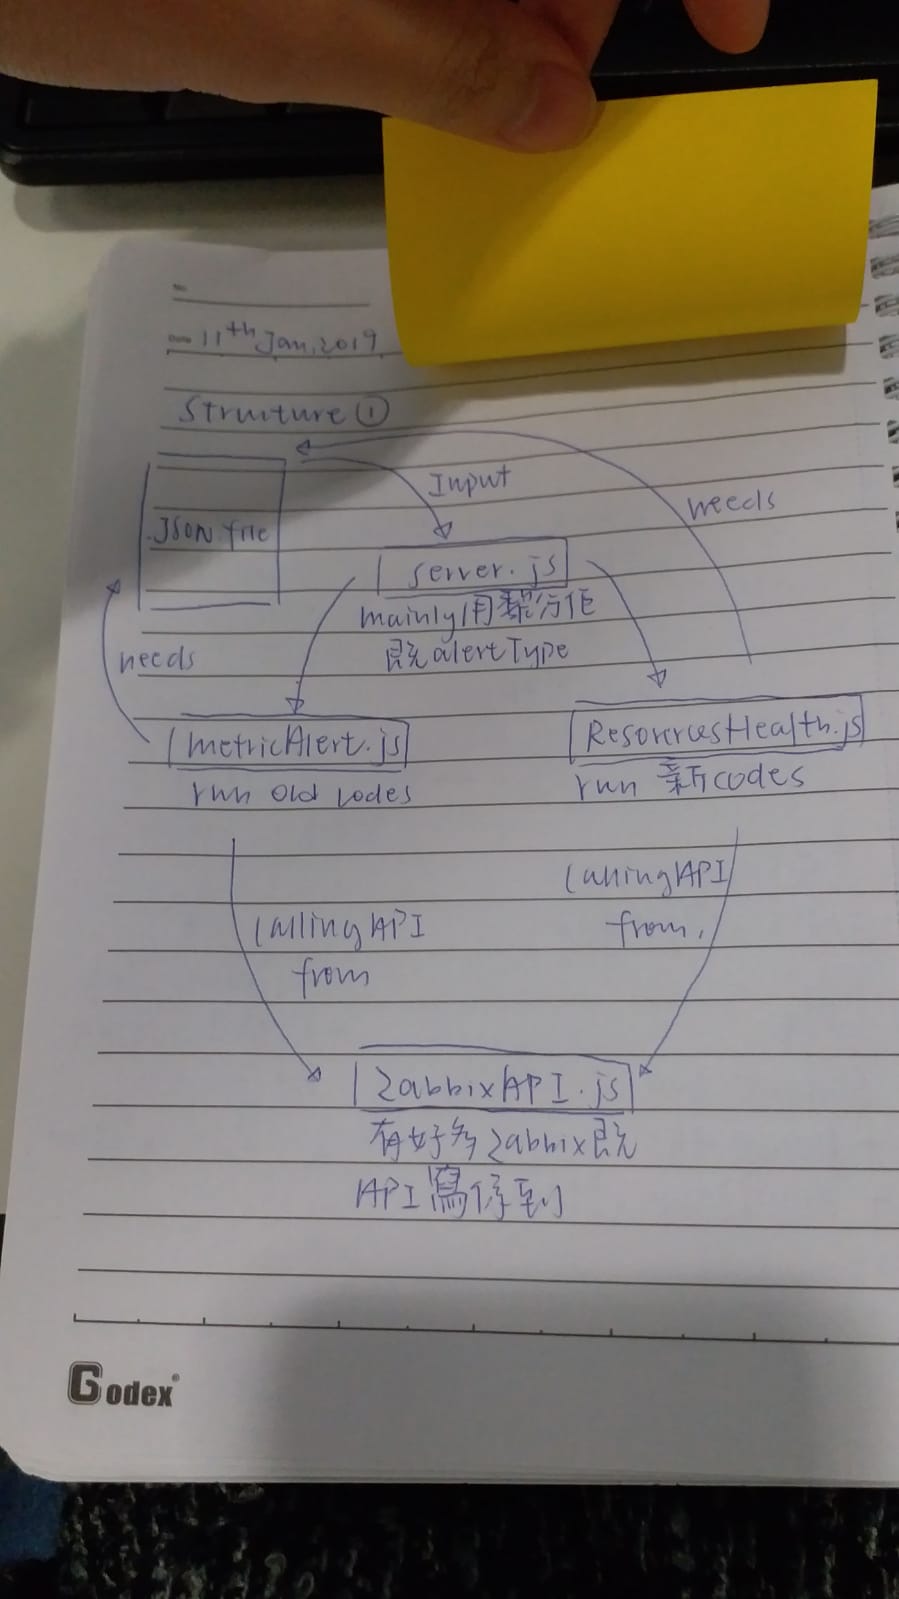 No.
Date 11th Jan, 2019
Structure ①
Input
needs
JSON file
server.js
mainly用黎分佢
既alertType
needs
metricAlert.js
run old codes
ResourcesHealth.js
run 新codes
Calling API
from
Calling API
from
ZabbixAPI.js
有好多Zabbix既
API寫係到
Godex